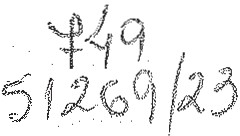 ⨎49
51269/23